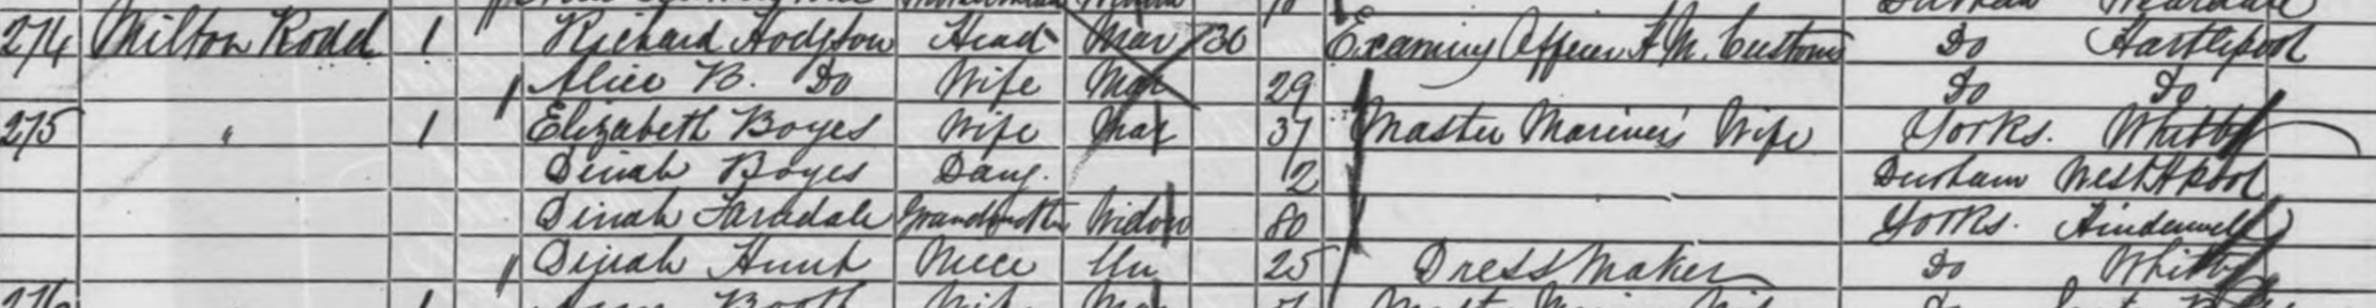 Durham
274 Milton Road 1 Richard Hodgson Head Mar 30 Examing Officer H.M. Customs Do Hartlepool
Alice B. Do Wife Mar 29 Do Do
275 " 1 Elizabeth Boyes Wife Mar 37 Master Mariner's Wife Yorks. Whitby
Dinah Boyes Daug. 2 Durham West Hpool
Dinah Grandmother Widow 80 Yorks. Hinderwell
Dinah Hunt Niece Un 25 Dress Maker Do Whitby
276 1 Booth Wife Mar